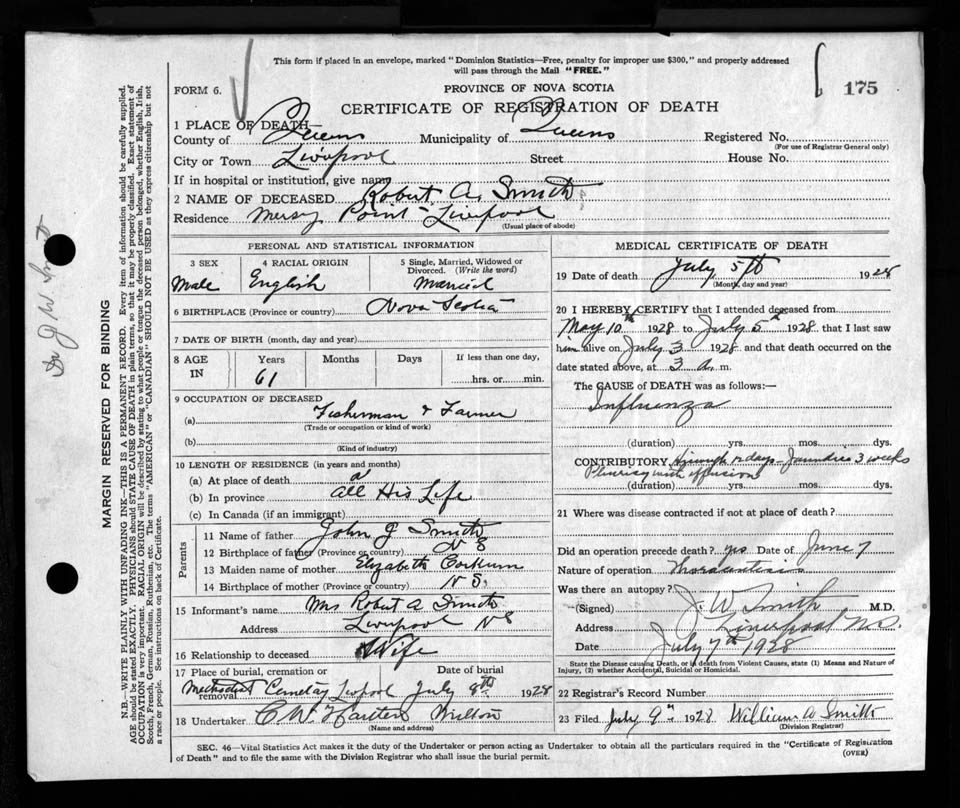 This form if placed in an envelope, marked "Dominion Statistics—Free, penalty for improper use $300," and properly addressed
will pass through the Mail "FREE."
FORM 6.
PROVINCE OF NOVA SCOTIA
175
CERTIFICATE OF REGISTRATION OF DEATH
1 PLACE OF DEATH—
County of Queens Municipality of Queens Registered No.
(For use of Registrar General only)
City or Town Liverpool Street House No.
If in hospital or institution, give name
2 NAME OF DECEASED Robert A. Smith
Residence Mersy Point Liverpool
(Usual place of abode)
PERSONAL AND STATISTICAL INFORMATION
3 SEX 4 RACIAL ORIGIN 5 Single, Married, Widowed or Divorced. (Write the word)
Male English Married
6 BIRTHPLACE (Province or country) Nova Scotia
7 DATE OF BIRTH (month, day and year)
8 AGE IN Years Months Days If less than one day,
61 hrs. or min.
9 OCCUPATION OF DECEASED
(a) Fisherman & Farmer
(Trade or occupation or kind of work)
(b)
(Kind of industry)
10 LENGTH OF RESIDENCE (in years and months)
(a) At place of death
(b) In province all His Life
(c) In Canada (if an immigrant)
Parents
11 Name of father John J Smith
12 Birthplace of father (Province or country) N S
13 Maiden name of mother Elizabeth Corkum
14 Birthplace of mother (Province or country) N S.
15 Informant's name Mrs Robert A Smith
Address Liverpool N S
16 Relationship to deceased Wife
17 Place of burial, cremation or removal Date of burial
Methodist Cemetay Livpool July 8th 1928
18 Undertaker C W
(Name and address)
MEDICAL CERTIFICATE OF DEATH
19 Date of death July 5th 1928
(Month, day and year)
20 I HEREBY CERTIFY that I attended deceased from
May 10th 1928 to July 5th 1928 that I last saw
him alive on July 3 1928 and that death occurred on the
date stated above, at 3 a. m.
The CAUSE of DEATH was as follows:—
Influenza
(duration) yrs. mos. dys.
CONTRIBUTORY 12 days Jaundice 3 weeks
Pleurisy with effusion
(duration) yrs. mos. dys.
21 Where was disease contracted if not at place of death?
Did an operation precede death? yes Date of June 7
Nature of operation
Was there an autopsy?
(Signed) J. W. Smith M.D.
Address Liverpool N.S.
Date July 7th 1928
State the Disease causing Death, or in death from Violent Causes, state (1) Means and Nature of
Injury, (2) whether Accidental, Suicidal or Homicidal.
22 Registrar's Record Number
23 Filed July 9th 1928 William A Smith
(Division Registrar)
SEC. 46—Vital Statistics Act makes it the duty of the Undertaker or person acting as Undertaker to obtain all the particulars required in the "Certificate of Registration
of Death" and to file the same with the Division Registrar who shall issue the burial permit. (OVER)
MARGIN RESERVED FOR BINDING
N.B.—WRITE PLAINLY WITH UNFADING INK—THIS IS A PERMANENT RECORD. Every item of information should be carefully supplied.
AGE should be stated EXACTLY. PHYSICIANS should STATE CAUSE OF DEATH in plain terms, so that it may be properly classified. Exact statement of
OCCUPATION is very important. RACIAL ORIGIN will be described by stating to what people or tongue the deceased person belonged, whether English, Irish,
Scotch, French, German, Russian, Ruthenian, etc. The terms "AMERICAN" or "CANADIAN" SHOULD NOT BE USED as they express citizenship but not
a race or people. See instructions on back of Certificate.
Dr J W Smith